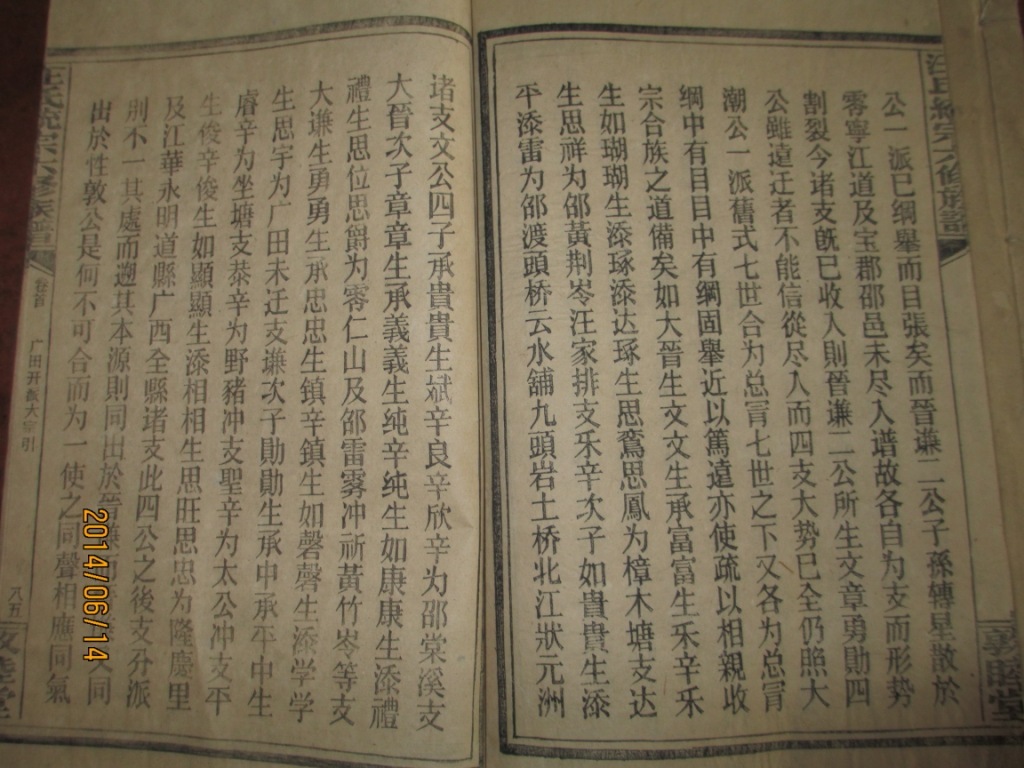 汪氏統宗六修族譜
敦睦堂
公一派已綱舉而目張矣而晉谦二公子孫傳星散於
零寧江道及宝郡邵邑未尽入谱故各自为支而形势
割裂今诸支旣已收入則晉谦二公所生文章勇勛四
公雖遠迁者不能信從尽入而四支大势已全仍照大
潮公一派舊式七世合为总冐七世之下又各为总冐
綱中有目目中有綱固舉近以篤遠亦使疏以相親收
宗合族之道備矣如大晉生文文生承富富生乐辛乐
生如瑚瑚生添琢添达琢生思鵞思鳳为樟木塘支达
生思祥为邵黃荆岺汪家排支乐辛次子如貴貴生添
平添雷为邵渡頭桥云水舖九頭岩土桥北江狀元洲
诸支文公四子承貴貴生斌辛良辛欣辛为邵棠溪支
大晉次子章章生承義義生纯辛纯生如康康生添禮
禮生思位思爵为零仁山及邵雷雾冲祈黃竹岺等支
大谦生勇勇生承忠忠生鎮辛鎮生如磬磬生添学学
生思宇为广田未迁支谦次子勛勛生承中承平中生
睿辛为坐塘支恭辛为野豬冲支聖辛为太公冲支平
生俊辛俊生如顯顯生添相相生思旺思忠为隆慶里
及江華永明道縣广西全縣诸支此四公之後支分派
別不一其處而遡其本源則同出於晉谦
同
出於性敦公是何不可合而为一使之同聲相應同氣
汪氏統宗六修族譜
卷首
广田开派大宗引
八五
敦睦堂
2014/06/14